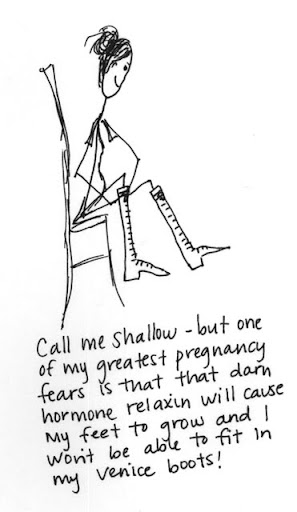 Call me shallow - but one
of my greatest pregnancy
fears is that that darn
hormone relaxin will cause
my feet to grow and I
won't be able to fit in
my venice boots!